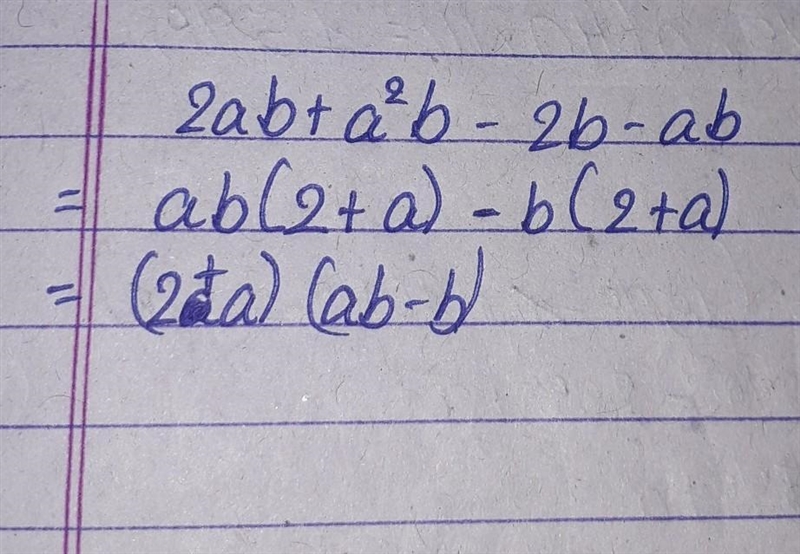 2ab + a²b - 2b - ab
= ab(2 + a) - b(2 + a)
= (2 + a) (ab - b)